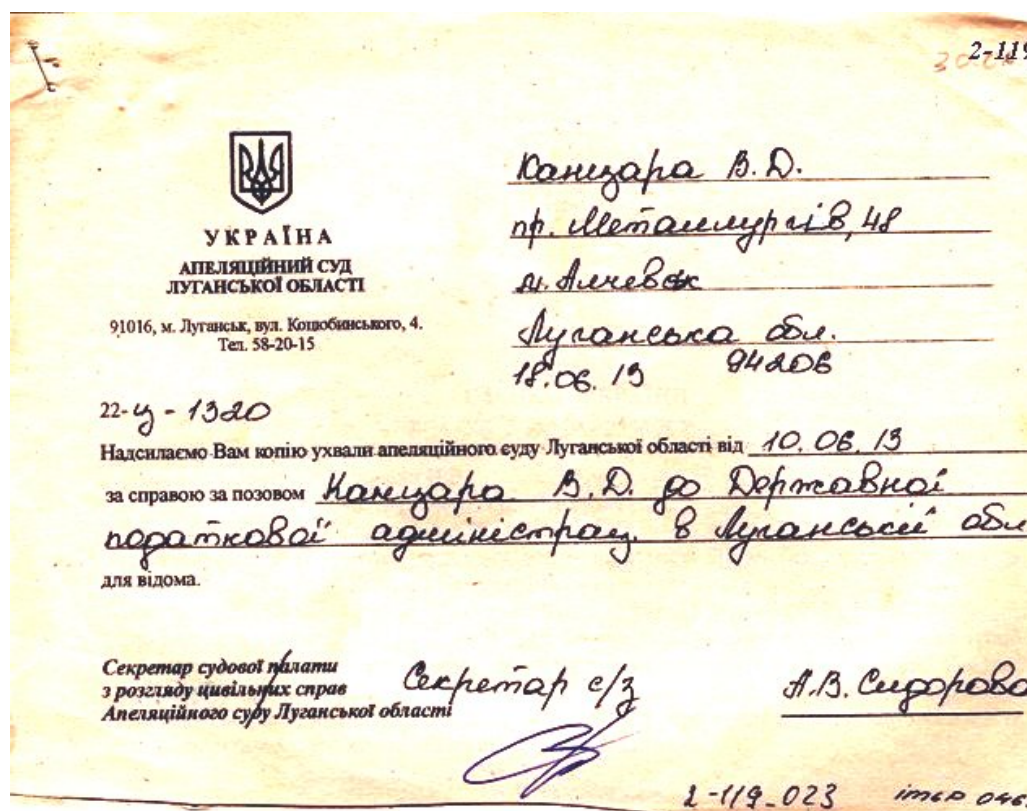 2-119
УКРАЇНА
АПЕЛЯЦІЙНИЙ СУД
ЛУГАНСЬКОЇ ОБЛАСТІ
91016, м. Луганськ, вул. Коцюбинського, 4.
Тел. 58-20-15
Канцара В.Д.
пр. Металлургів, 48
м. Алчевск
Луганська обл.
18.06.13 94206
22-ц-1320
Надсилаємо Вам копію ухвали апеляційного суду Луганської області від 10.06.13
за справою за позовом Канцара В.Д. до Державної
податкової адміністрац. в Луганській обл
для відома.
Секретар судової палати
з розгляду цивільних справ
Апеляційного суду Луганської області
Секретар с/з
А.В. Сидорова
2-119_023